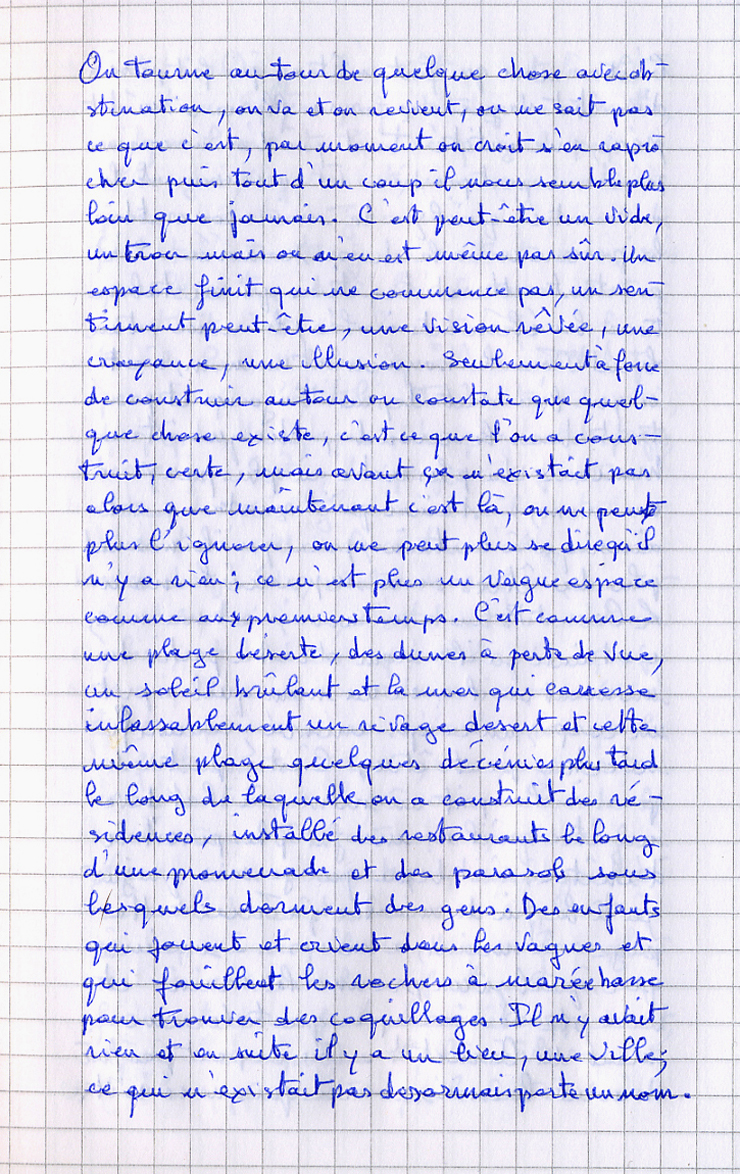 On tourne autour de quelque chose avec ob-
stination, on va et on revient, on ne sait pas
ce que c'est, par moment on croit s'en rappro
cher puis tout d'un coup il nous semble plus
loin que jamais. C'est peut-être un vide,
un trou mais on n'en est même pas sûr. Un
espace finit qui ne commence pas, un sen
timent peut-être, une vision rêvée, une
croyance, une illusion. Seulement à force
de construire autour on constate que quel-
que chose existe, c'est ce que l'on a cons-
truit, certe, mais avant ça n'existait pas
alors que maintenant c'est là, on ne peut
plus l'ignorer, on ne peut plus se dire qu'il
n'y a rien ; ce n'est plus un vague espace
comme aux premiers temps. C'est comme
une plage déserte, des dunes à perte de vue,
un soleil brûlant et la mer qui caresse
inlassablement un rivage désert et cette
même plage quelques décénies plus tard
le long de laquelle on a construit des ré-
sidences, installé des restaurants le long
d'une promenade et des parasols sous
lesquels dorment des gens. Des enfants
qui jouent et crient dans les vagues et
qui fouillent les rochers à marée basse
pour trouver des coquillages. Il n'y avait
rien et en suite il y a un lieu, une ville ;
ce qui n'existait pas desormais porte un nom.